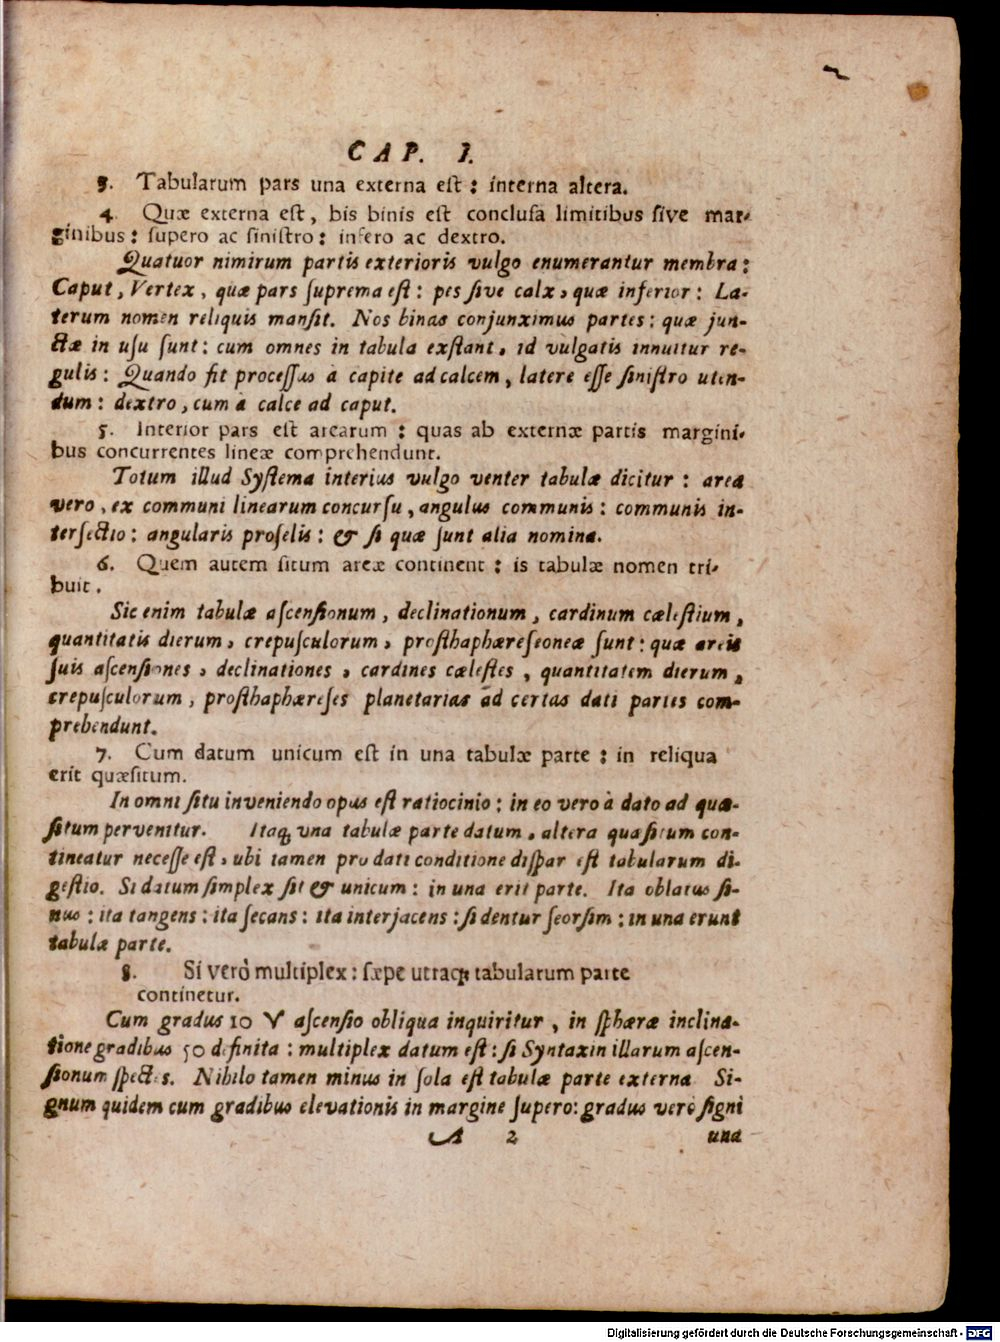 CAP. I.
3. Tabularum pars una externa eſt : interna altera.
4. Quæ externa eſt, bis binis eſt concluſa limitibus ſive mar-
ginibus : ſupero ac ſiniſtro : infero ac dextro.
Quatuor nimirum partis exterioris vulgo enumerantur membra :
Caput, Vertex, quæ pars ſuprema eſt : pes ſive calx, quæ inferior : La-
terum nomen reliquis manſit. Nos binas conjunximus partes : quæ jun-
ctæ in uſu ſunt : cum omnes in tabula exſtant, id vulgatis innuitur re-
gulis : Quando fit proceſſus à capite ad calcem, latere eſſe ſiniſtro uten-
dum : dextro, cum à calce ad caput.
5. Interior pars eſt arearum : quas ab externæ partis margini-
bus concurrentes lineæ comprehendunt.
Totum illud Syſtema interius vulgo venter tabulæ dicitur : area
vero, ex communi linearum concurſu, angulus communis : communis in-
terſectio : angularis proſelis : & ſi quæ ſunt alia nomina.
6. Quem autem ſitum areæ continent : is tabulæ nomen tri-
buit.
Sic enim tabulæ aſcenſionum, declinationum, cardinum cæleſtium,
quantitatis dierum, crepuſculorum, proſthaphæreſeoneæ ſunt : quæ areis
ſuis aſcenſiones, declinationes, cardines cæleſtes, quantitatem dierum,
crepuſculorum, proſthaphæreſes planetarias ad certas dati partes com-
prehendunt.
7. Cum datum unicum eſt in una tabulæ parte : in reliqua
erit quæſitum.
In omni ſitu inveniendo opus eſt ratiocinio : in eo vero à dato ad quæ-
ſitum pervenitur. Itaq; vna tabulæ parte datum, altera quæſitum con-
tineatur neceſſe eſt, ubi tamen pro dati conditione diſpar eſt tabularum di-
geſtio. Si datum ſimplex ſit & unicum : in una erit parte. Ita oblatus ſi-
nus : ita tangens : ita ſecans : ita interjacens : ſi dentur ſeorſim : in una erunt
tabulæ parte.
8. Si verò multiplex : ſæpe utraq; tabularum parte
continetur.
Cum gradus 10 ♈ aſcenſio obliqua inquiritur, in ſphæræ inclina-
tione gradibus 50 definita : multiplex datum eſt : ſi Syntaxin illarum aſcen-
ſionum ſpectes. Nihilo tamen minus in ſola eſt tabulæ parte externa Si-
gnum quidem cum gradibus elevationis in margine ſupero : gradus verò ſigni
A 2 una
Digitalisierung gefördert durch die Deutsche Forschungsgemeinschaft - DFG